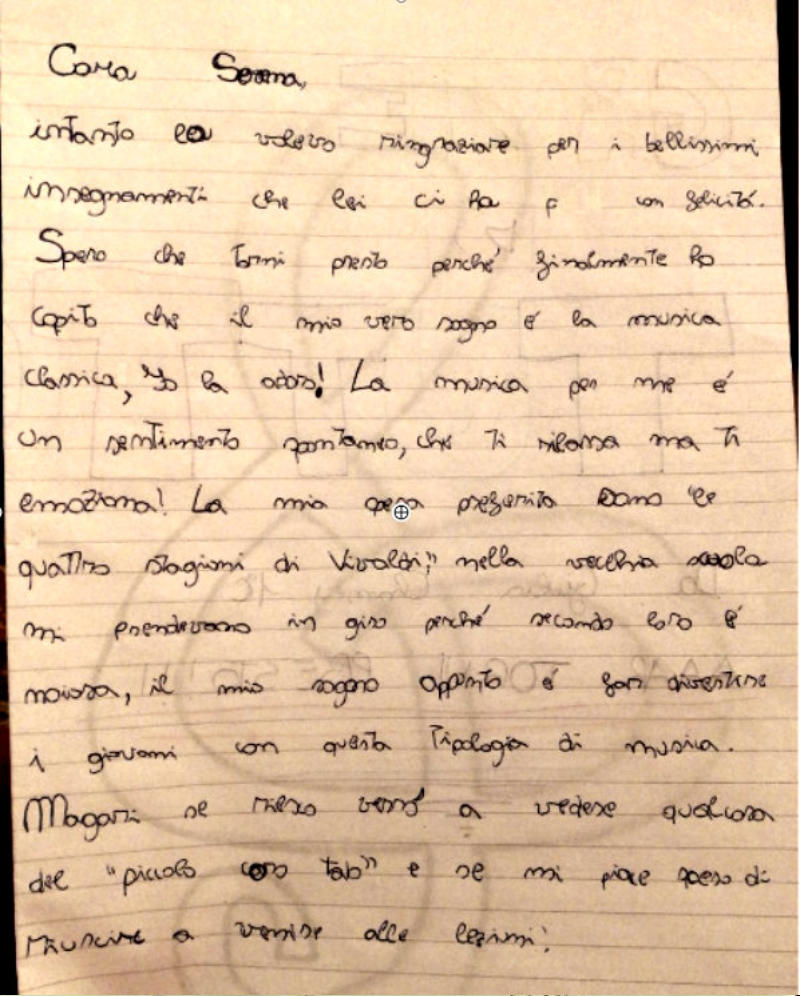 Cara Serena,
intanto la volevo ringraziare per i bellissimi
insegnamenti che lei ci ha con felicitá.
Spero che torni presto perché finalmente ho
capito che il mio vero sogno é la musica
classica, Io la adoro! La musica per me é
un sentimento spontaneo, che ti rilassa ma ti
emoziona! La mia opera preferita sono "le
quattro stagioni di Vivaldi", nella vecchia scuola
mi prendevano in giro perché secondo loro é
noiosa, il mio sogno appunto é far divertire
i giovani con questa tipologia di musica.
Magari se riesco verró a vedere qualcosa
del "piccolo coro tab" e se mi piace spero di
riuscire a venire alle lezioni!